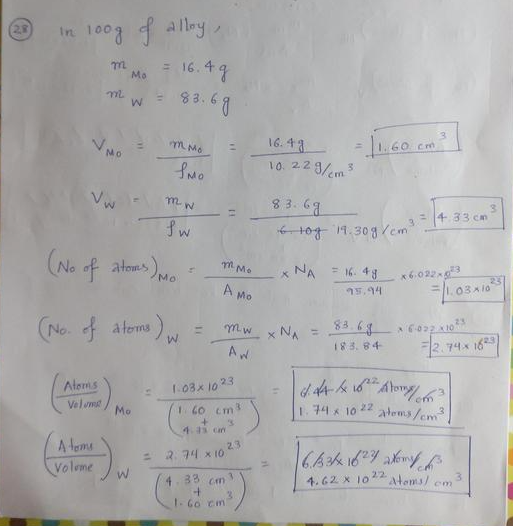 28 In 100g of alloy,
m Mo = 16.4g
m W = 83.6g
V Mo = m Mo / ρ Mo = 16.4g / 10.22g/cm³ = 1.60 cm³
V W = m W / ρ W = 83.6g / 6.10g 19.30g/cm³ = 4.33 cm³
(No of atoms) Mo = m Mo / A Mo × N A = 16.4g / 95.94 × 6.022×10²³ = 1.03×10²³
(No. of atoms) W = m W / A W × N A = 83.6g / 183.84 × 6.022×10²³ = 2.74×10²³
(Atoms / Volume) Mo = 1.03×10²³ / (1.60 cm³ + 4.33 cm³) = ×10²² Atoms/cm³
1.74×10²² atoms/cm³
(Atoms / Volume) W = 2.74×10²³ / (4.33 cm³ + 1.60 cm³) = atoms/cm³
4.62×10²² Atoms/cm³